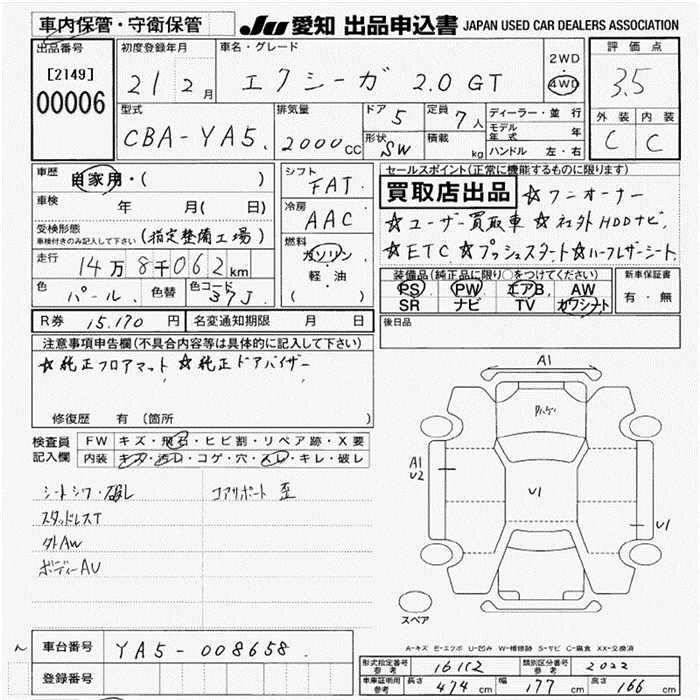 車内保管・守衛保管
JU 愛知 出品申込書 JAPAN USED CAR DEALERS ASSOCIATION
出品番号
[2149]
00006
初度登録年月
21 2月
車名・グレード
エクシーガ 2.0 GT
2WD
・
4WD
評価点
3.5
外装 内装
C C
型式
CBA-YA5
排気量
2000cc
ドア 5
形状 SW
定員 7人
積載 kg
ディーラー・並行
モデル年式 年
ハンドル 左・右
車歴
自家用・( )
車検
年 月( 日)
受検形態
車検付きのみ記入して下さい (指定整備工場)
走行
14万8千062km
色 パール 色替 色コード 37J
シフト
FAT
冷房
AAC
燃料
ガソリン
軽・油
( )
セールスポイント(正常に機能するものに限ります)
買取店出品 ☆ワンオーナー
☆ユーザー買取車 ☆社外HDDナビ
☆ETC ☆プッシュスタート☆ハーフレザーシート
装備品(純正品に限り○をつけてください)
PS PW エアB AW
SR ナビ TV カワシート
新車保証書
有・無
R券 15,170円 名変通知期限 月 日
後日品
注意事項申告欄(不具合内容等は具体的に記入して下さい)
☆純正フロアマット ☆純正ドアバイザー
修復歴 有(箇所 )
検査員
記入欄
FW キズ・飛石・ヒビ割・リペア跡・X要
内装 キズ・汚レ・コゲ・穴・スレ・キレ・破レ
シートシワ・破レ コアサポート歪
スタッドレスT
外AW
ボディーAU
A1
A1
U2
U1
U1
スペア
A-キズ E-エクボ U-凹み W-補修跡 S-サビ C-腐食 XX-交換済
車台番号 YA5-008658
登録番号
形式指定番号 参考 16112 類別区分番号 参考 2022
車庫証明用 参考 長さ 474cm 幅 177cm 高さ 166cm